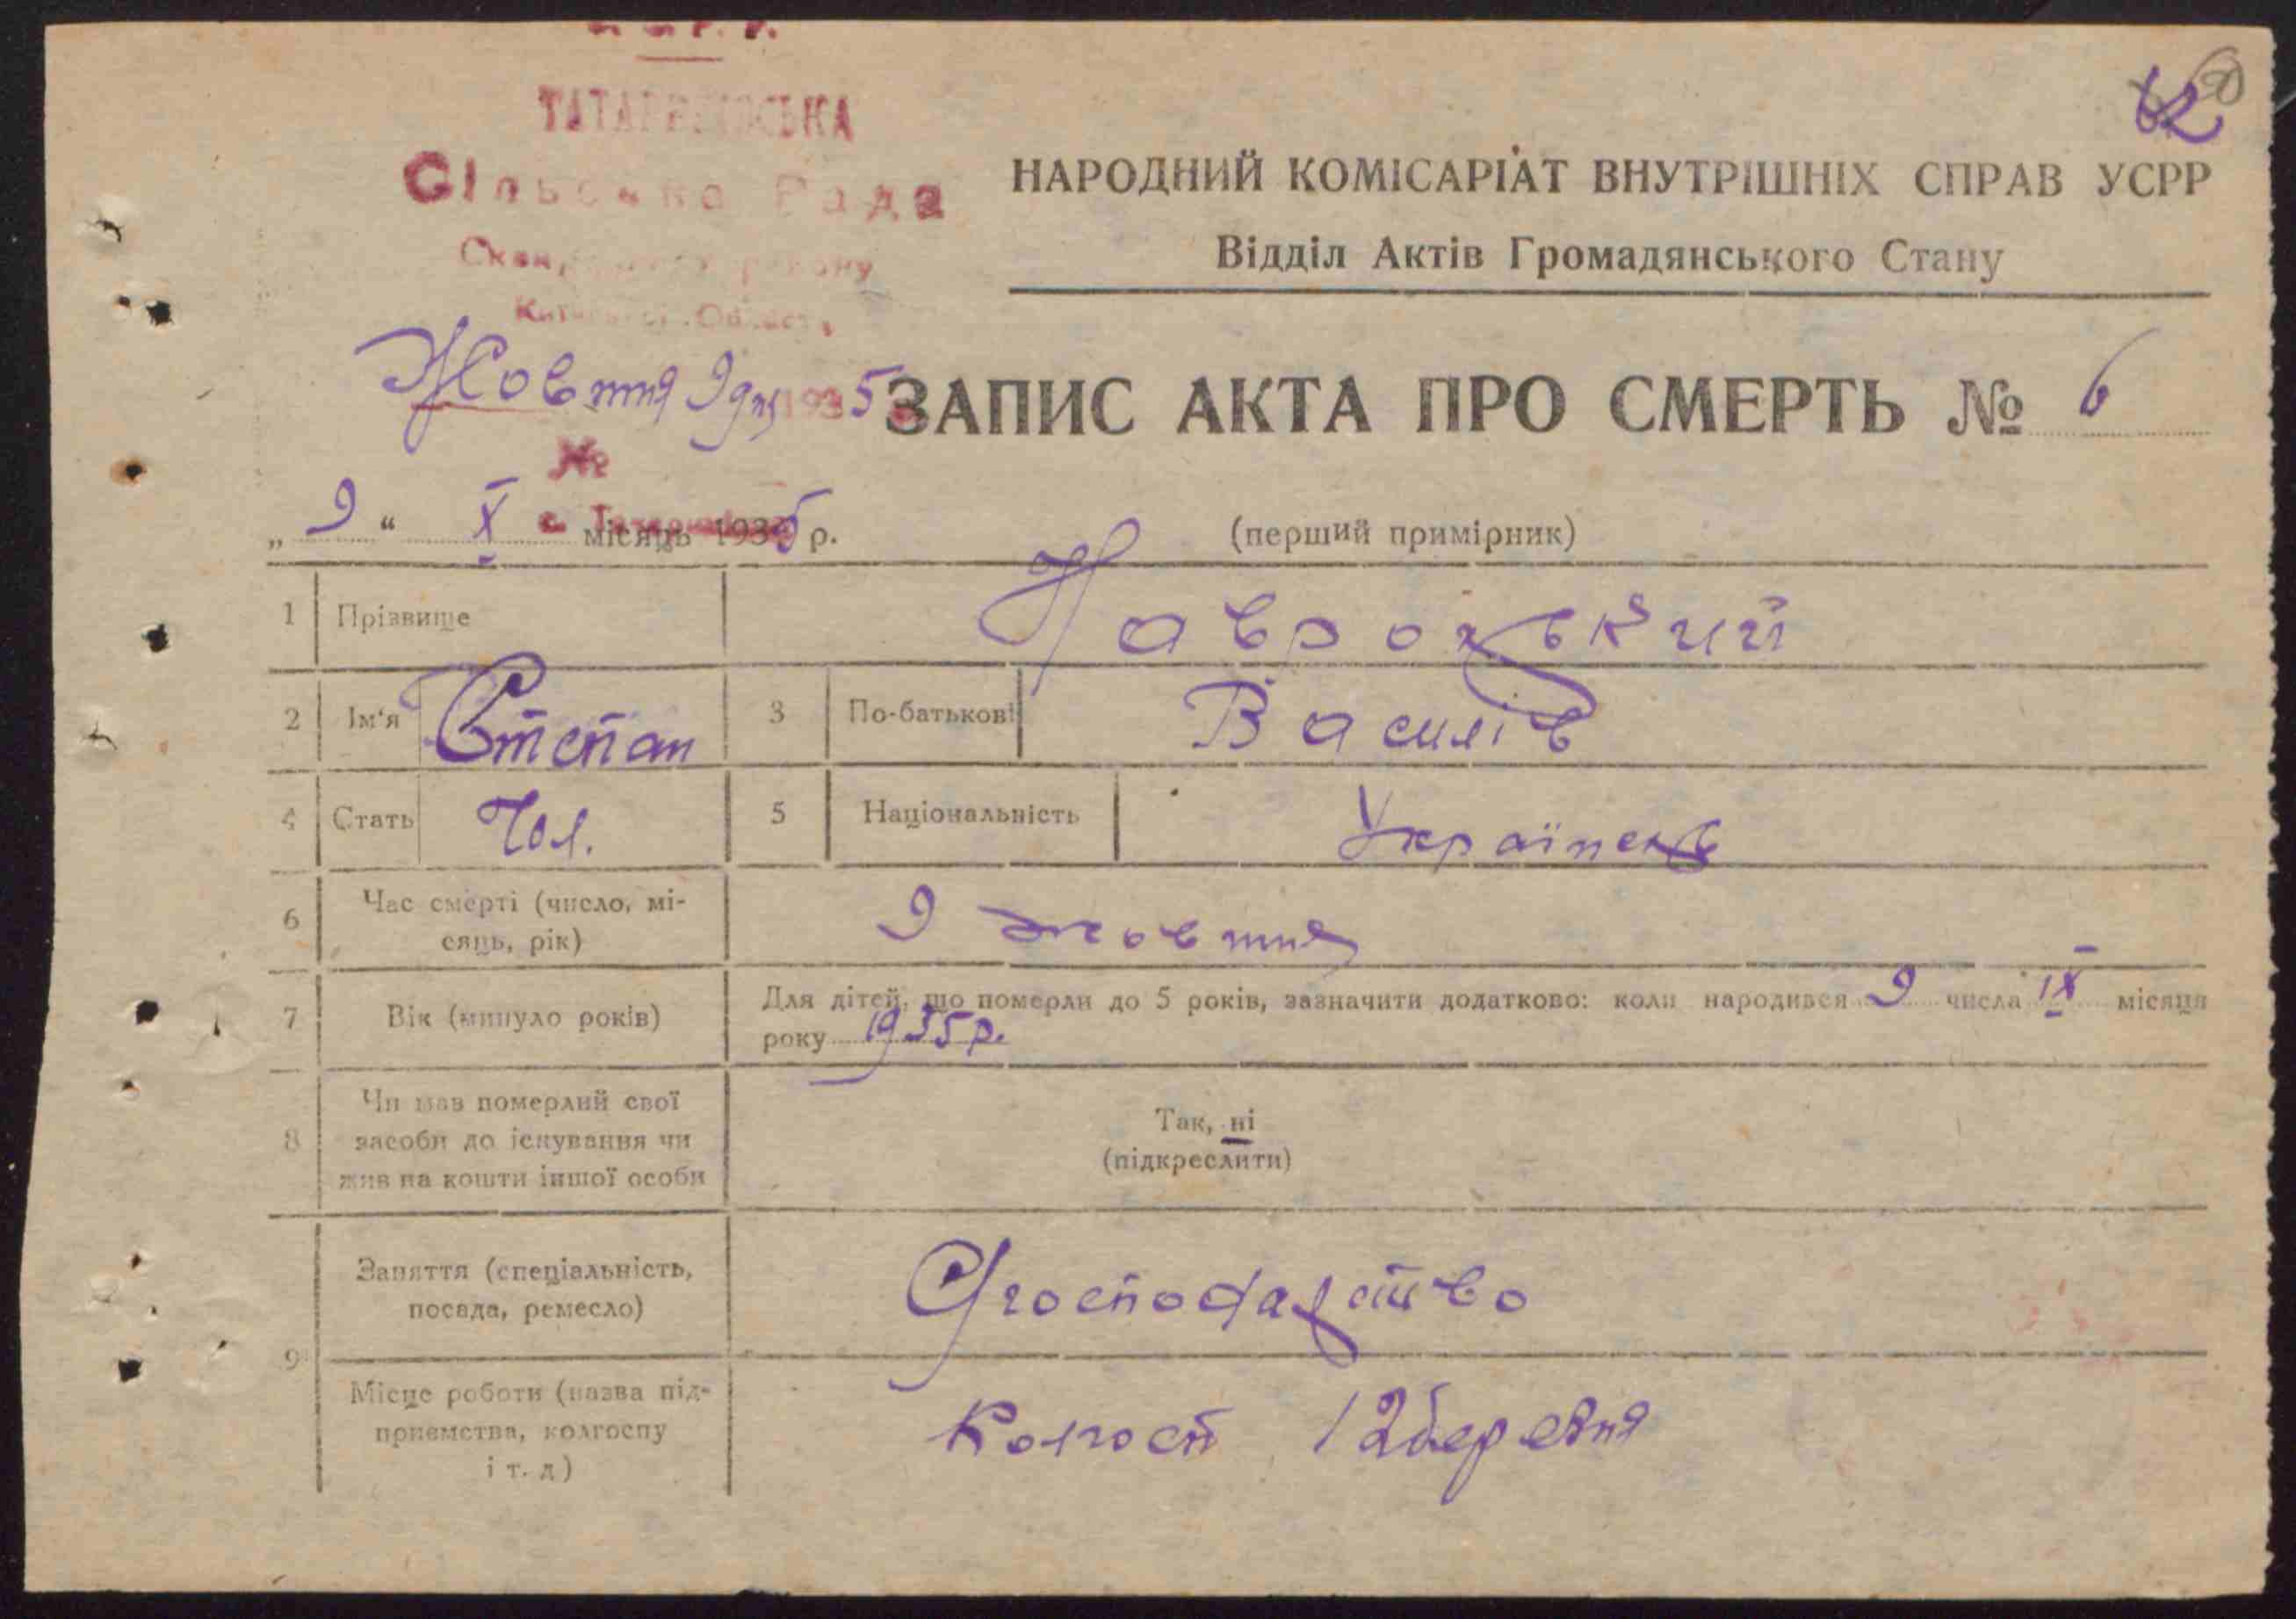 ТАТАРИНІВСЬКА
Сільська Рада
району
Київської Області
62
НАРОДНИЙ КОМІСАРІАТ ВНУТРІШНІХ СПРАВ УСРР
Відділ Актів Громадянського Стану
Жовтня 9 дня 1935
ЗАПИС АКТА ПРО СМЕРТЬ № 6
№
„ 9 “ X місяць 1935 р.
(перший примірник)
1 Прізвище Навроцький
2 Ім‘я Степан 3 По-батькові Василів
4 Стать Чол. 5 Національність Українець
6 Час смерті (число, мі-
сяць, рік) 9 жовтня
7 Вік (минуло років) Для дітей, що померли до 5 років, зазначити додатково: коли народився 9 числа IX місяця
року 1935 р.
8 Чи мав померлий свої
засоби до існування чи
жив на кошти іншої особи
Так, ні
(підкреслити)
9 Заняття (спеціальність,
посада, ремесло) Сгосподарство
Місце роботи (назва під-
приємства, колгоспу
і т. д)
Колгосп 12березня